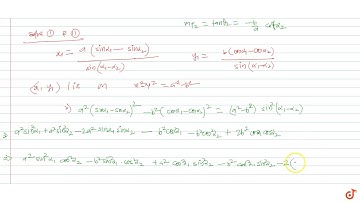 m_{P_2} = tanθ_2 = -b/a cotα_2
solve ① & ②
x_1 = a (sinα_1 - sinα_2) / sin(α_1-α_2)    y_1 = b(cosα_1-cosα_2) / sin(α_1-α_2)
(x_1, y_1) lie on x²-y² = a²-b²
⇒ a²(sinα_1-sinα_2)² - b²(cosα_1-cosα_2)² = (a²-b²) sin²(α_1-α_2)
⇒ a²sin²α_1 + a²sin²α_2 - 2a²sinα_1 sinα_2 - b²cos²α_1 - b²cos²α_2 + 2b²cosα_1 cosα_2
⇒ a²sin²α_1 cos²α_2 - b²sin²α_1 cos²α_2 + a²cos²α_1 sin²α_2 - b²cos²α_1 sin²α_2 - 2(
doubtnut